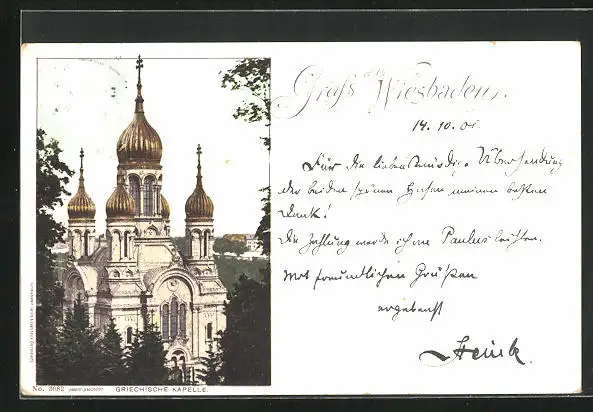 Gruß aus Wiesbaden.
14.10.01
Für die liebenswürdige Übersendung
der beiden schönen Hasen meinen besten
Dank!
Die Zahlung werde ich an Paulus leisten.
Mit freundlichen Grüßen
ergebenst
Heink.
No. 3082 GRIECHISCHE KAPELLE.